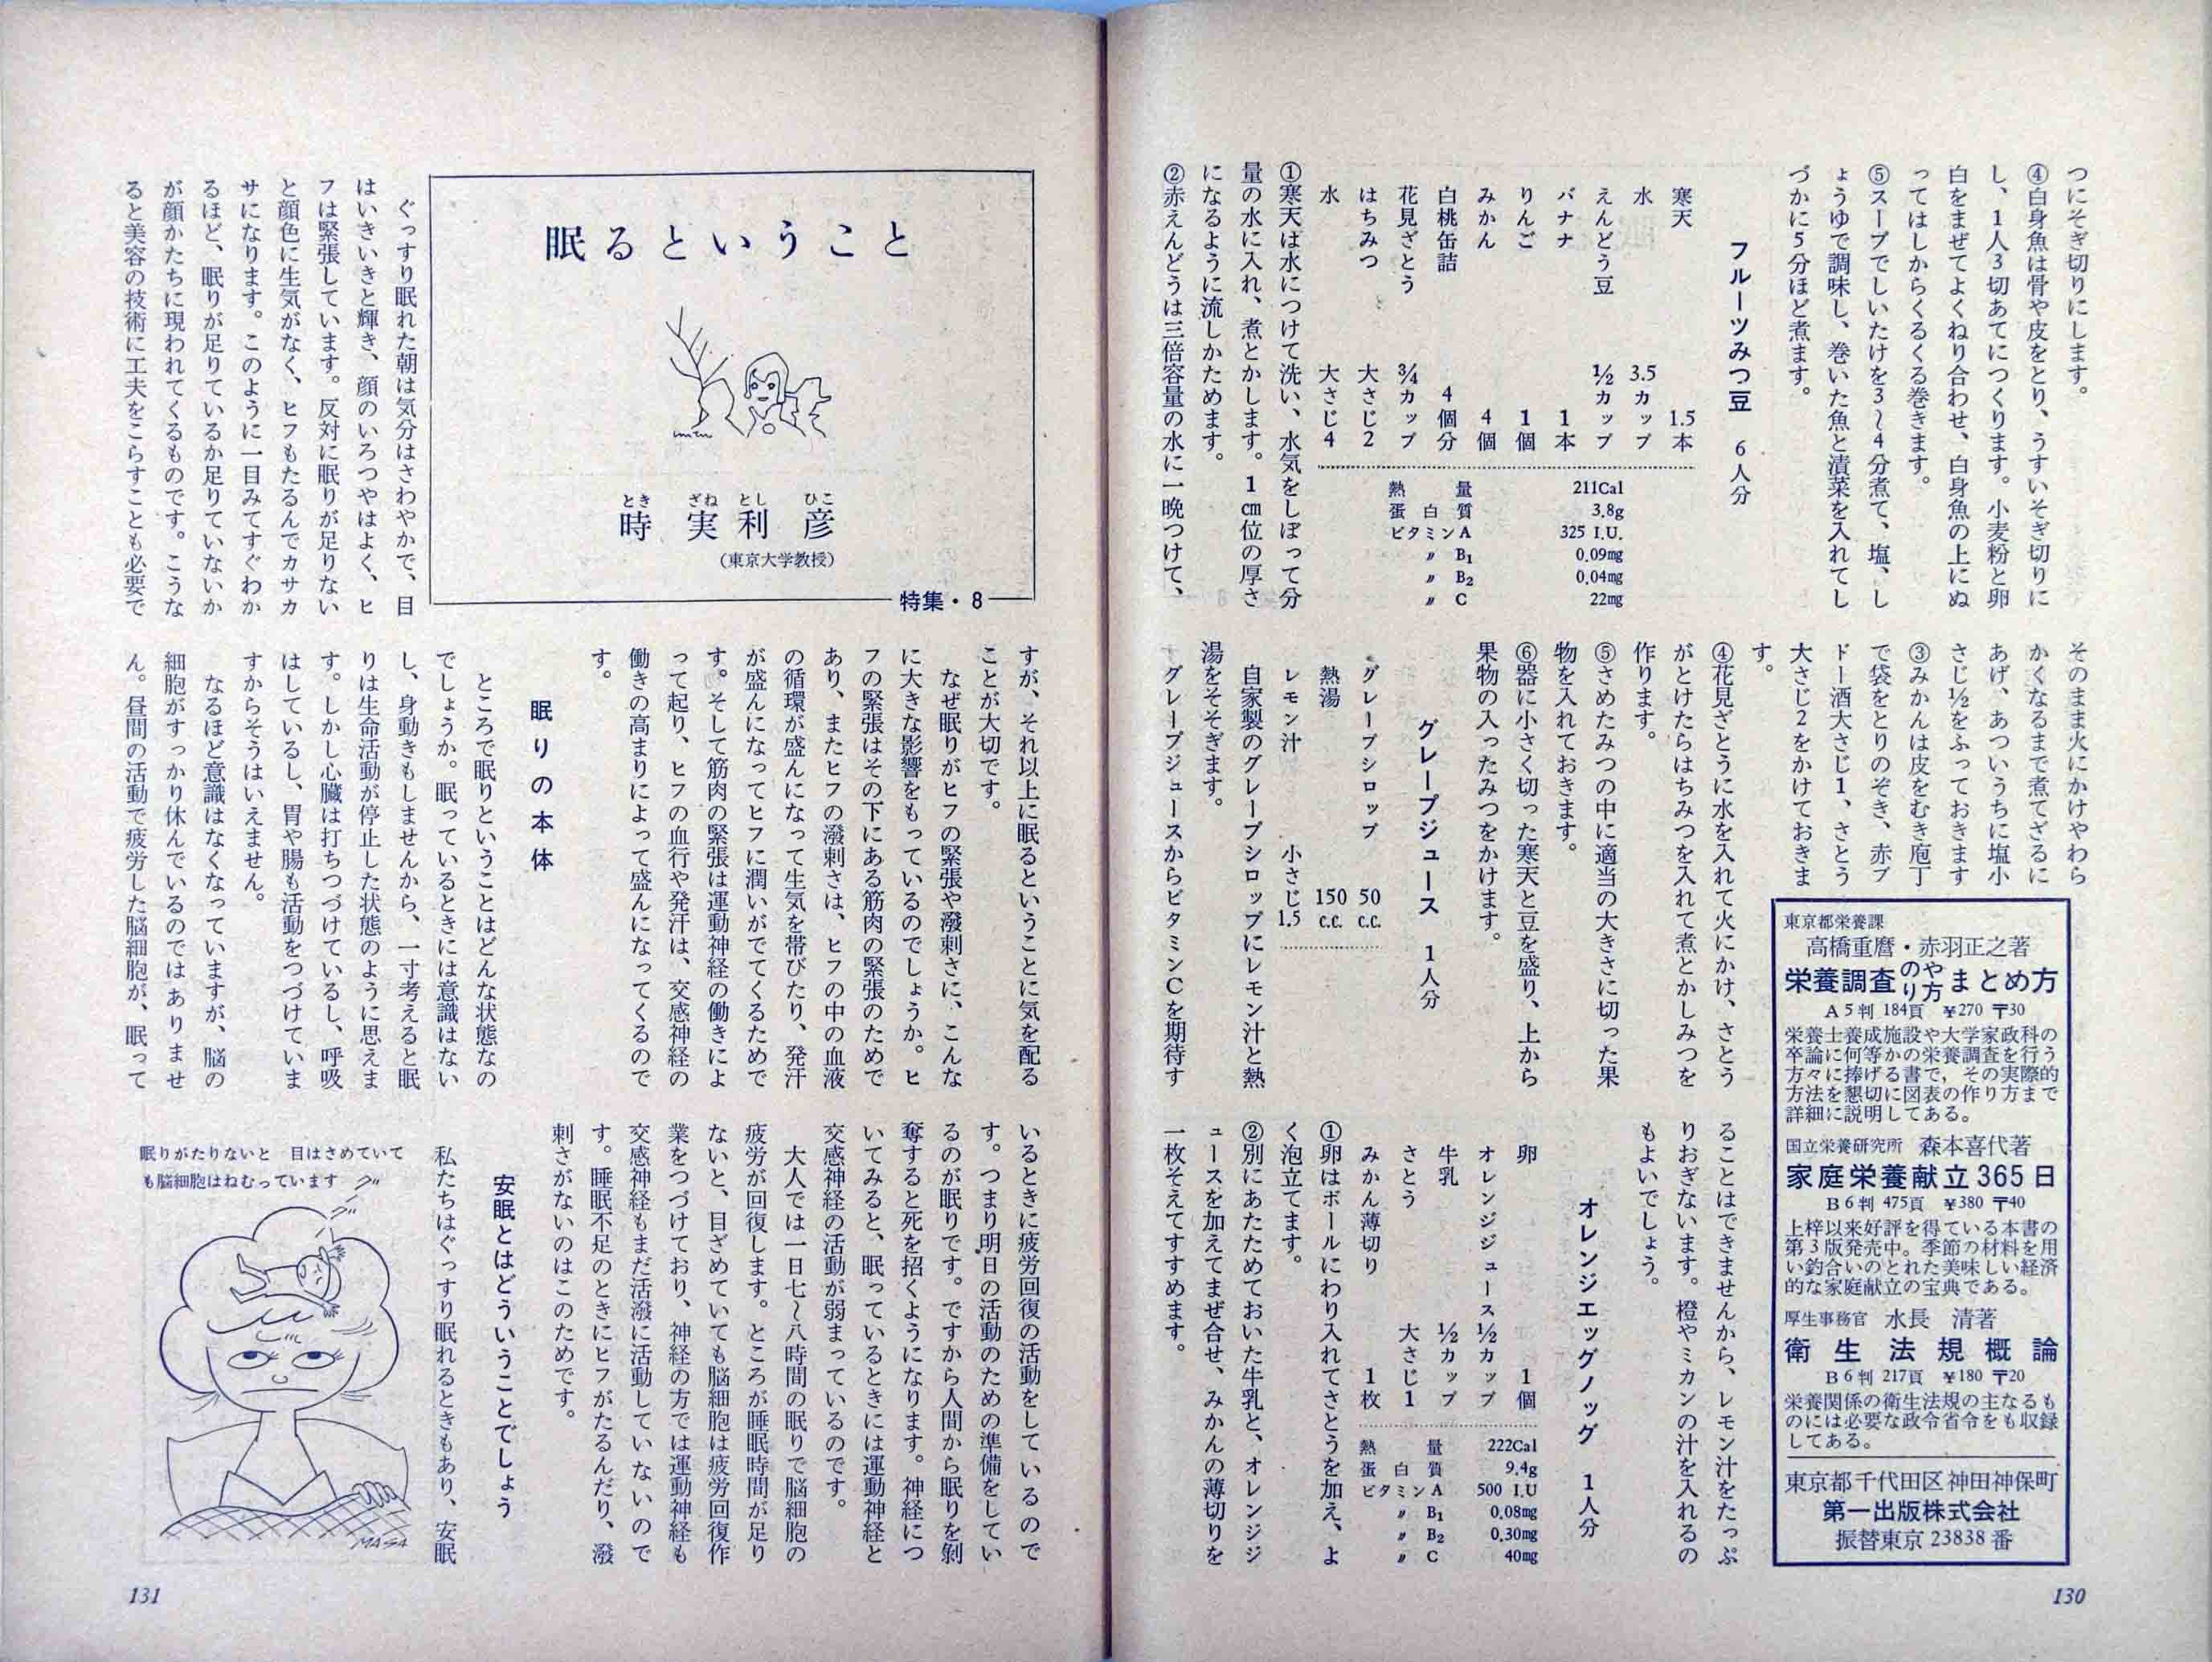 つにそぎ切りにします。
④白身魚は骨や皮をとり、うすいそぎ切りに
し、1人3切あてにつくります。小麦粉と卵
白をまぜてよくねり合わせ、白身魚の上にぬ
ってはしからくるくる巻きます。
⑤スープでしいたけを3〜4分煮て、塩、し
ょうゆで調味し、巻いた魚と漬菜を入れてし
づかに5分ほど煮ます。
フルーツみつ豆 6人分
寒天 1.5本
水 3.5カップ
えんどう豆 ½カップ
バナナ 1本
りんご 1個
みかん 4個
白桃缶詰 4個分
花見ざとう ¾カップ
はちみつ 大さじ2
水 大さじ4
熱量 211Cal
蛋白質 3.8g
ビタミンA 325 I.U.
〃 B₁ 0.09mg
〃 B₂ 0.04mg
〃 C 22mg
①寒天は水につけて洗い、水気をしぼって分
量の水に入れ、煮とかします。1㎝位の厚さ
になるように流しかためます。
②赤えんどうは三倍容量の水に一晩つけて、
そのまま火にかけやわら
かくなるまで煮てざるに
あげ、あついうちに塩小
さじ½をふっておきます
③みかんは皮をむき庖丁
で袋をとりのぞき、赤ブ
ドー酒大さじ1、さとう
大さじ2をかけておきま
す。
④花見ざとうに水を入れて火にかけ、さとう
がとけたらはちみつを入れて煮とかしみつを
作ります。
⑤さめたみつの中に適当の大きさに切った果
物を入れておきます。
⑥器に小さく切った寒天と豆を盛り、上から
果物の入ったみつをかけます。
グレープジュース 1人分
グレープシロップ 50c.c.
熱湯 150c.c.
レモン汁 小さじ1.5
自家製のグレープシロップにレモン汁と熱
湯をそそぎます。
グレープジュースからビタミンCを期待す
ることはできませんから、レモン汁をたっぷ
りおぎないます。橙やミカンの汁を入れるの
もよいでしょう。
オレンジエッグノッグ 1人分
卵 1個
オレンジジュース ½カップ
牛乳 ½カップ
さとう 大さじ1
みかん薄切り 1枚
熱量 222Cal
蛋白質 9.4g
ビタミンA 500 I.U
〃 B₁ 0.08mg
〃 B₂ 0.30mg
〃 C 40mg
①卵はボールにわり入れてさとうを加え、よ
く泡立てます。
②別にあたためておいた牛乳と、オレンジジ
ュースを加えてまぜ合せ、みかんの薄切りを
一枚そえてすすめます。
東京都栄養課
高橋重麿・赤羽正之著
栄養調査のやり方まとめ方
A5判 184頁 ¥270 〒30
栄養士養成施設や大学家政科の
卒論に何等かの栄養調査を行う
方々に捧げる書で，その実際的
方法を懇切に図表の作り方まで
詳細に説明してある。
国立栄養研究所 森本喜代著
家庭栄養献立365日
B6判 475頁 ¥380 〒40
上梓以来好評を得ている本書の
第3版発売中。季節の材料を用
い釣合いのとれた美味しい経済
的な家庭献立の宝典である。
厚生事務官 水長 清著
衛生法規概論
B6判 217頁 ¥180 〒20
栄養関係の衛生法規の主なるも
のには必要な政令省令をも収録
してある。
東京都千代田区神田神保町
第一出版株式会社
振替東京23838番
130
眠るということ
時実利彦
とき ざね とし ひこ
(東京大学教授)
特集・8
ぐっすり眠れた朝は気分はさわやかで、目
はいきいきと輝き、顔のいろつやはよく、ヒ
フは緊張しています。反対に眠りが足りない
と顔色に生気がなく、ヒフもたるんでカサカ
サになります。このように一目みてすぐわか
るほど、眠りが足りているか足りていないか
が顔かたちに現われてくるものです。こうな
ると美容の技術に工夫をこらすことも必要で
すが、それ以上に眠るということに気を配る
ことが大切です。
なぜ眠りがヒフの緊張や潑刺さに、こんな
に大きな影響をもっているのでしょうか。ヒ
フの緊張はその下にある筋肉の緊張のためで
あり、またヒフの潑刺さは、ヒフの中の血液
の循環が盛んになって生気を帯びたり、発汗
が盛んになってヒフに潤いがでてくるためで
す。そして筋肉の緊張は運動神経の働きによ
って起り、ヒフの血行や発汗は、交感神経の
働きの高まりによって盛んになってくるので
す。
眠りの本体
ところで眠りということはどんな状態なの
でしょうか。眠っているときには意識はない
し、身動きもしませんから、一寸考えると眠
りは生命活動が停止した状態のように思えま
す。しかし心臓は打ちつづけているし、呼吸
はしているし、胃や腸も活動をつづけていま
すからそうはいえません。
なるほど意識はなくなっていますが、脳の
細胞がすっかり休んでいるのではありませ
ん。昼間の活動で疲労した脳細胞が、眠って
いるときに疲労回復の活動をしているので
す。つまり明日の活動のための準備をしてい
るのが眠りです。ですから人間から眠りを剝
奪すると死を招くようになります。神経につ
いてみると、眠っているときには運動神経と
交感神経の活動が弱まっているのです。
大人では一日七〜八時間の眠りで脳細胞の
疲労が回復します。ところが睡眠時間が足り
ないと、目ざめていても脳細胞は疲労回復作
業をつづけており、神経の方では運動神経も
交感神経もまだ活潑に活動していないので
す。睡眠不足のときにヒフがたるんだり、潑
刺さがないのはこのためです。
安眠とはどういうことでしょう
私たちはぐっすり眠れるときもあり、安眠
眠りがたりないと 目はさめていて
も脳細胞はねむっています
MASA
131